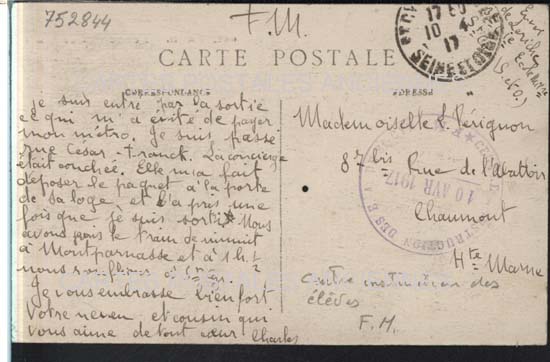 752844
F.M.
CARTE POSTALE
CORRESPONDANCE
ADRESSE
je suis entré par la sortie
ce qui m'a évité de payer
mon métro. Je suis passé
rue César-Franck. La concierge
était couchée. Elle m'a fait
déposer le paquet à la porte
de sa loge, et l'a pris une
fois que je suis sorti. Nous
avons pris le train de minuit
à Montparnasse et à 1h. 1/2
nous ronflions à
Je vous embrasse bien fort
votre neveu et cousin qui
vous aime de tout cœur Charles
Mademoiselle Pérignon
87 bis Rue de l'Abattoir
Chaumont
Hte Marne
Centre instruction des
élèves
F.M.
17
10 4
17
SEINE ET OISE
10 AVR 1917
INSTRUCTION DES